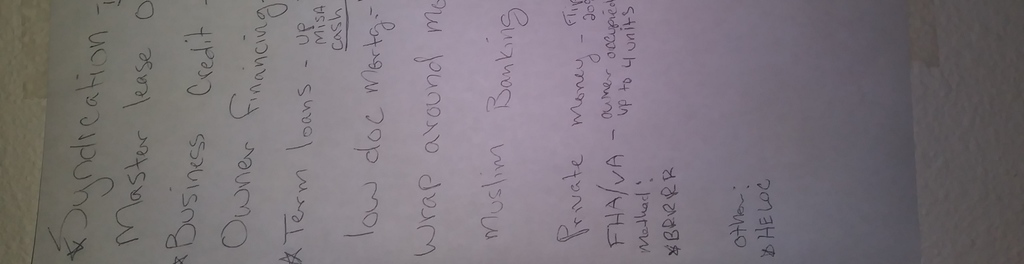 ☆Syndication -
Master lease O
☆Business Credit -
Owner Financing-
☆Term loans - up
MISA
cash
low doc mortg.-
Wrap around mo
Muslim Banking
Private money - Fip
FHA/VA - owner occupied
up to 4 units
method:
☆BRRRR
other:
☆HELOC